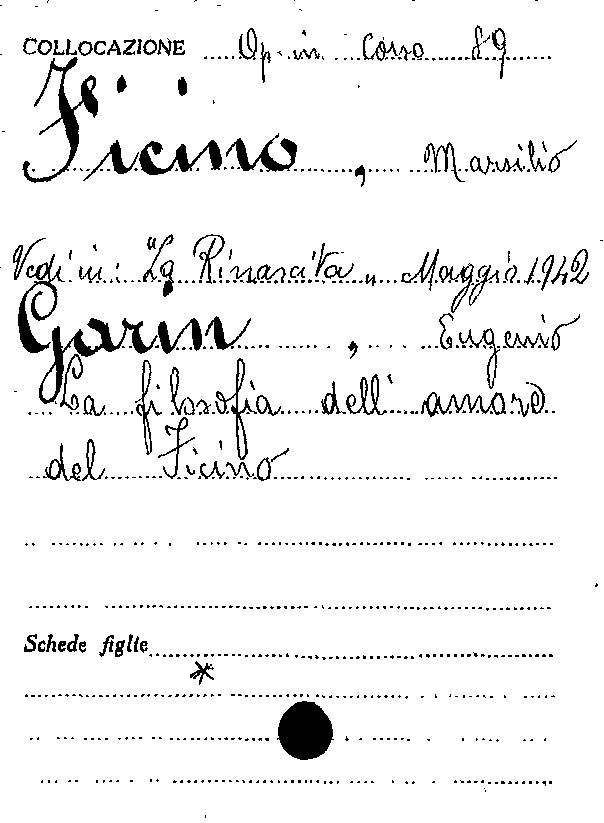 COLLOCAZIONE Op. in Corso 89
Ficino, Marsilio
Vedi in: "La Rinascita" Maggio 1942
Garin, Eugenio
La filosofia dell' amore
del Ficino
Schede figlie
*